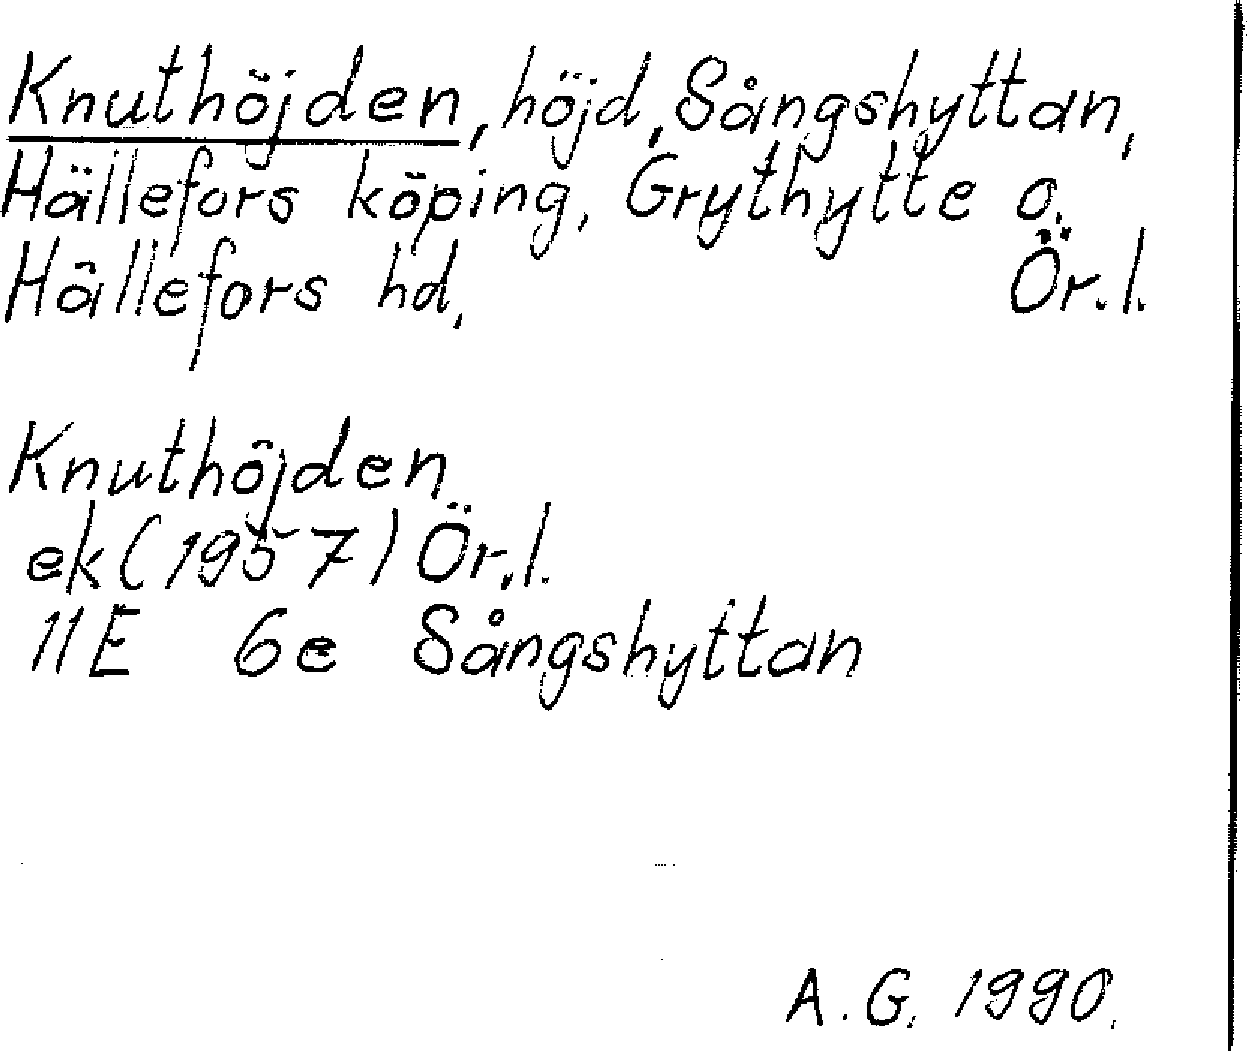 Knuthöjden, höjd, Sångshyttan,
Hällefors köping, Grythytte o.
Hällefors hd, Ör.l.
Knuthöjden
ek (1957) Ör.l.
11E 6e Sångshyttan
A.G. 1990.